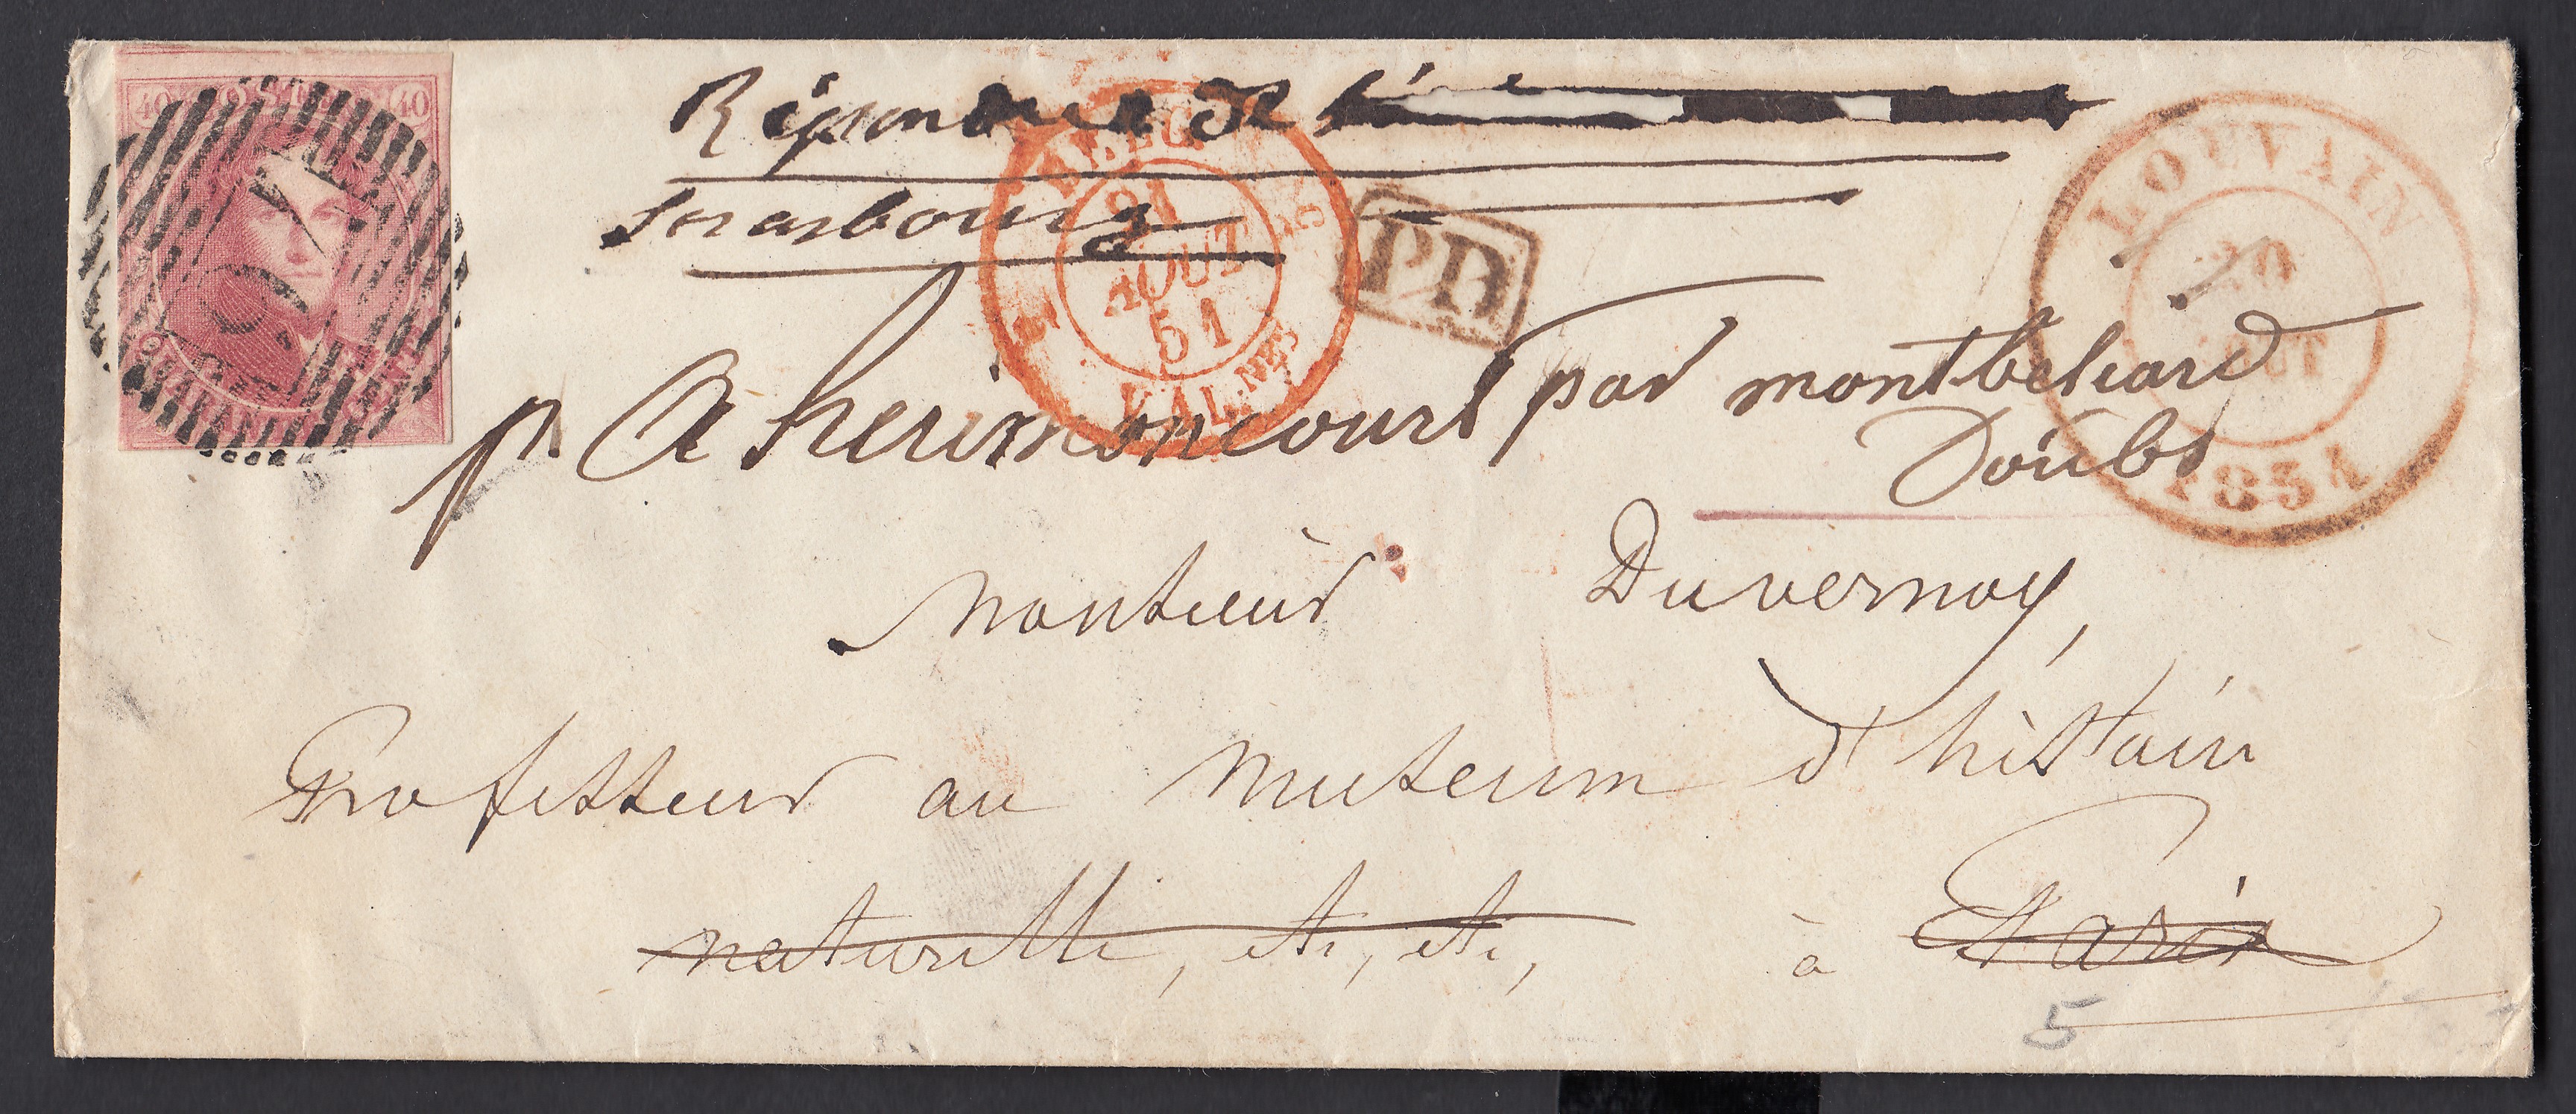 40 POSTES 40
QUARANTE CENT.
BELG.
21
AOUT
51
VALNES
PD
LOUVAIN
20
AOUT
1851
de
Strasbourg
p. A herimoncourt par montbeliard
Doubs
Monsieur Duvernoy,
Professeur au Museum d'histoire
naturelle, etc, etc, à Paris
5